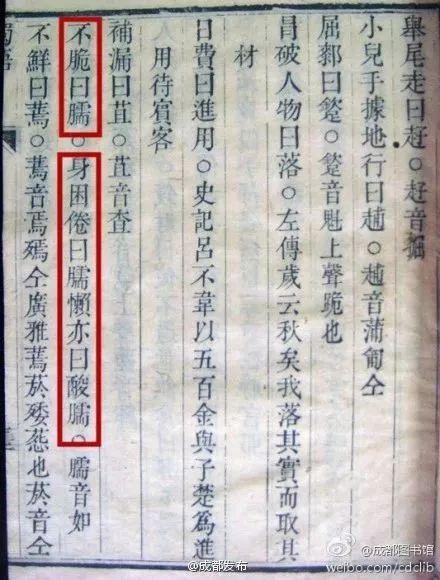 舉尾走曰赶○赶音掘
小兒手據地行曰○音蒲匐仝
屈曰○音魁上聲跪也
冐破人物曰落○左傳歲云秋矣我落其實而取其
材
日費曰進用○史記呂不韋以五百金與子楚爲進
用待賓客
補漏曰苴○苴音查
不脆曰臑○身困倦曰臑懶亦曰酸臑○臑音如
不鮮曰蔫○蔫音焉嫣仝廣雅蔫菸矮葾也菸音仝
蜀語
@成都发布
@成都图书馆
weibo.com/cdclib